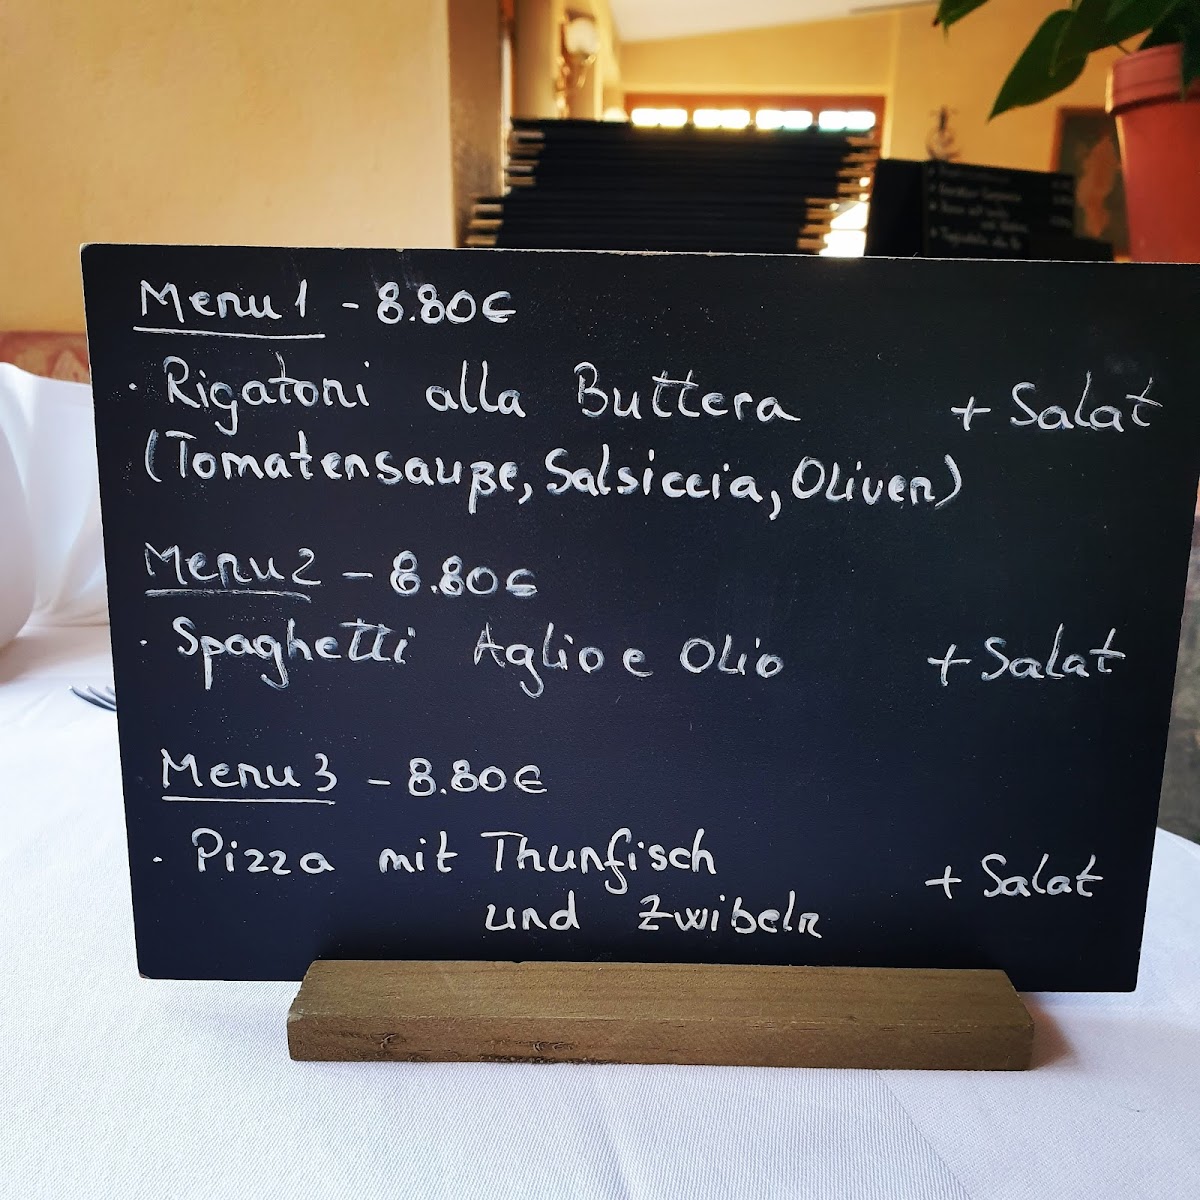 Menu 1 - 8.80€
· Rigatoni alla Buttera + Salat
(Tomatensauße, Salsiccia, Oliven)
Menu 2 - 8.80€
· Spaghetti Aglio e Olio + Salat
Menu 3 - 8.80€
· Pizza mit Thunfisch + Salat
und Zwibeln